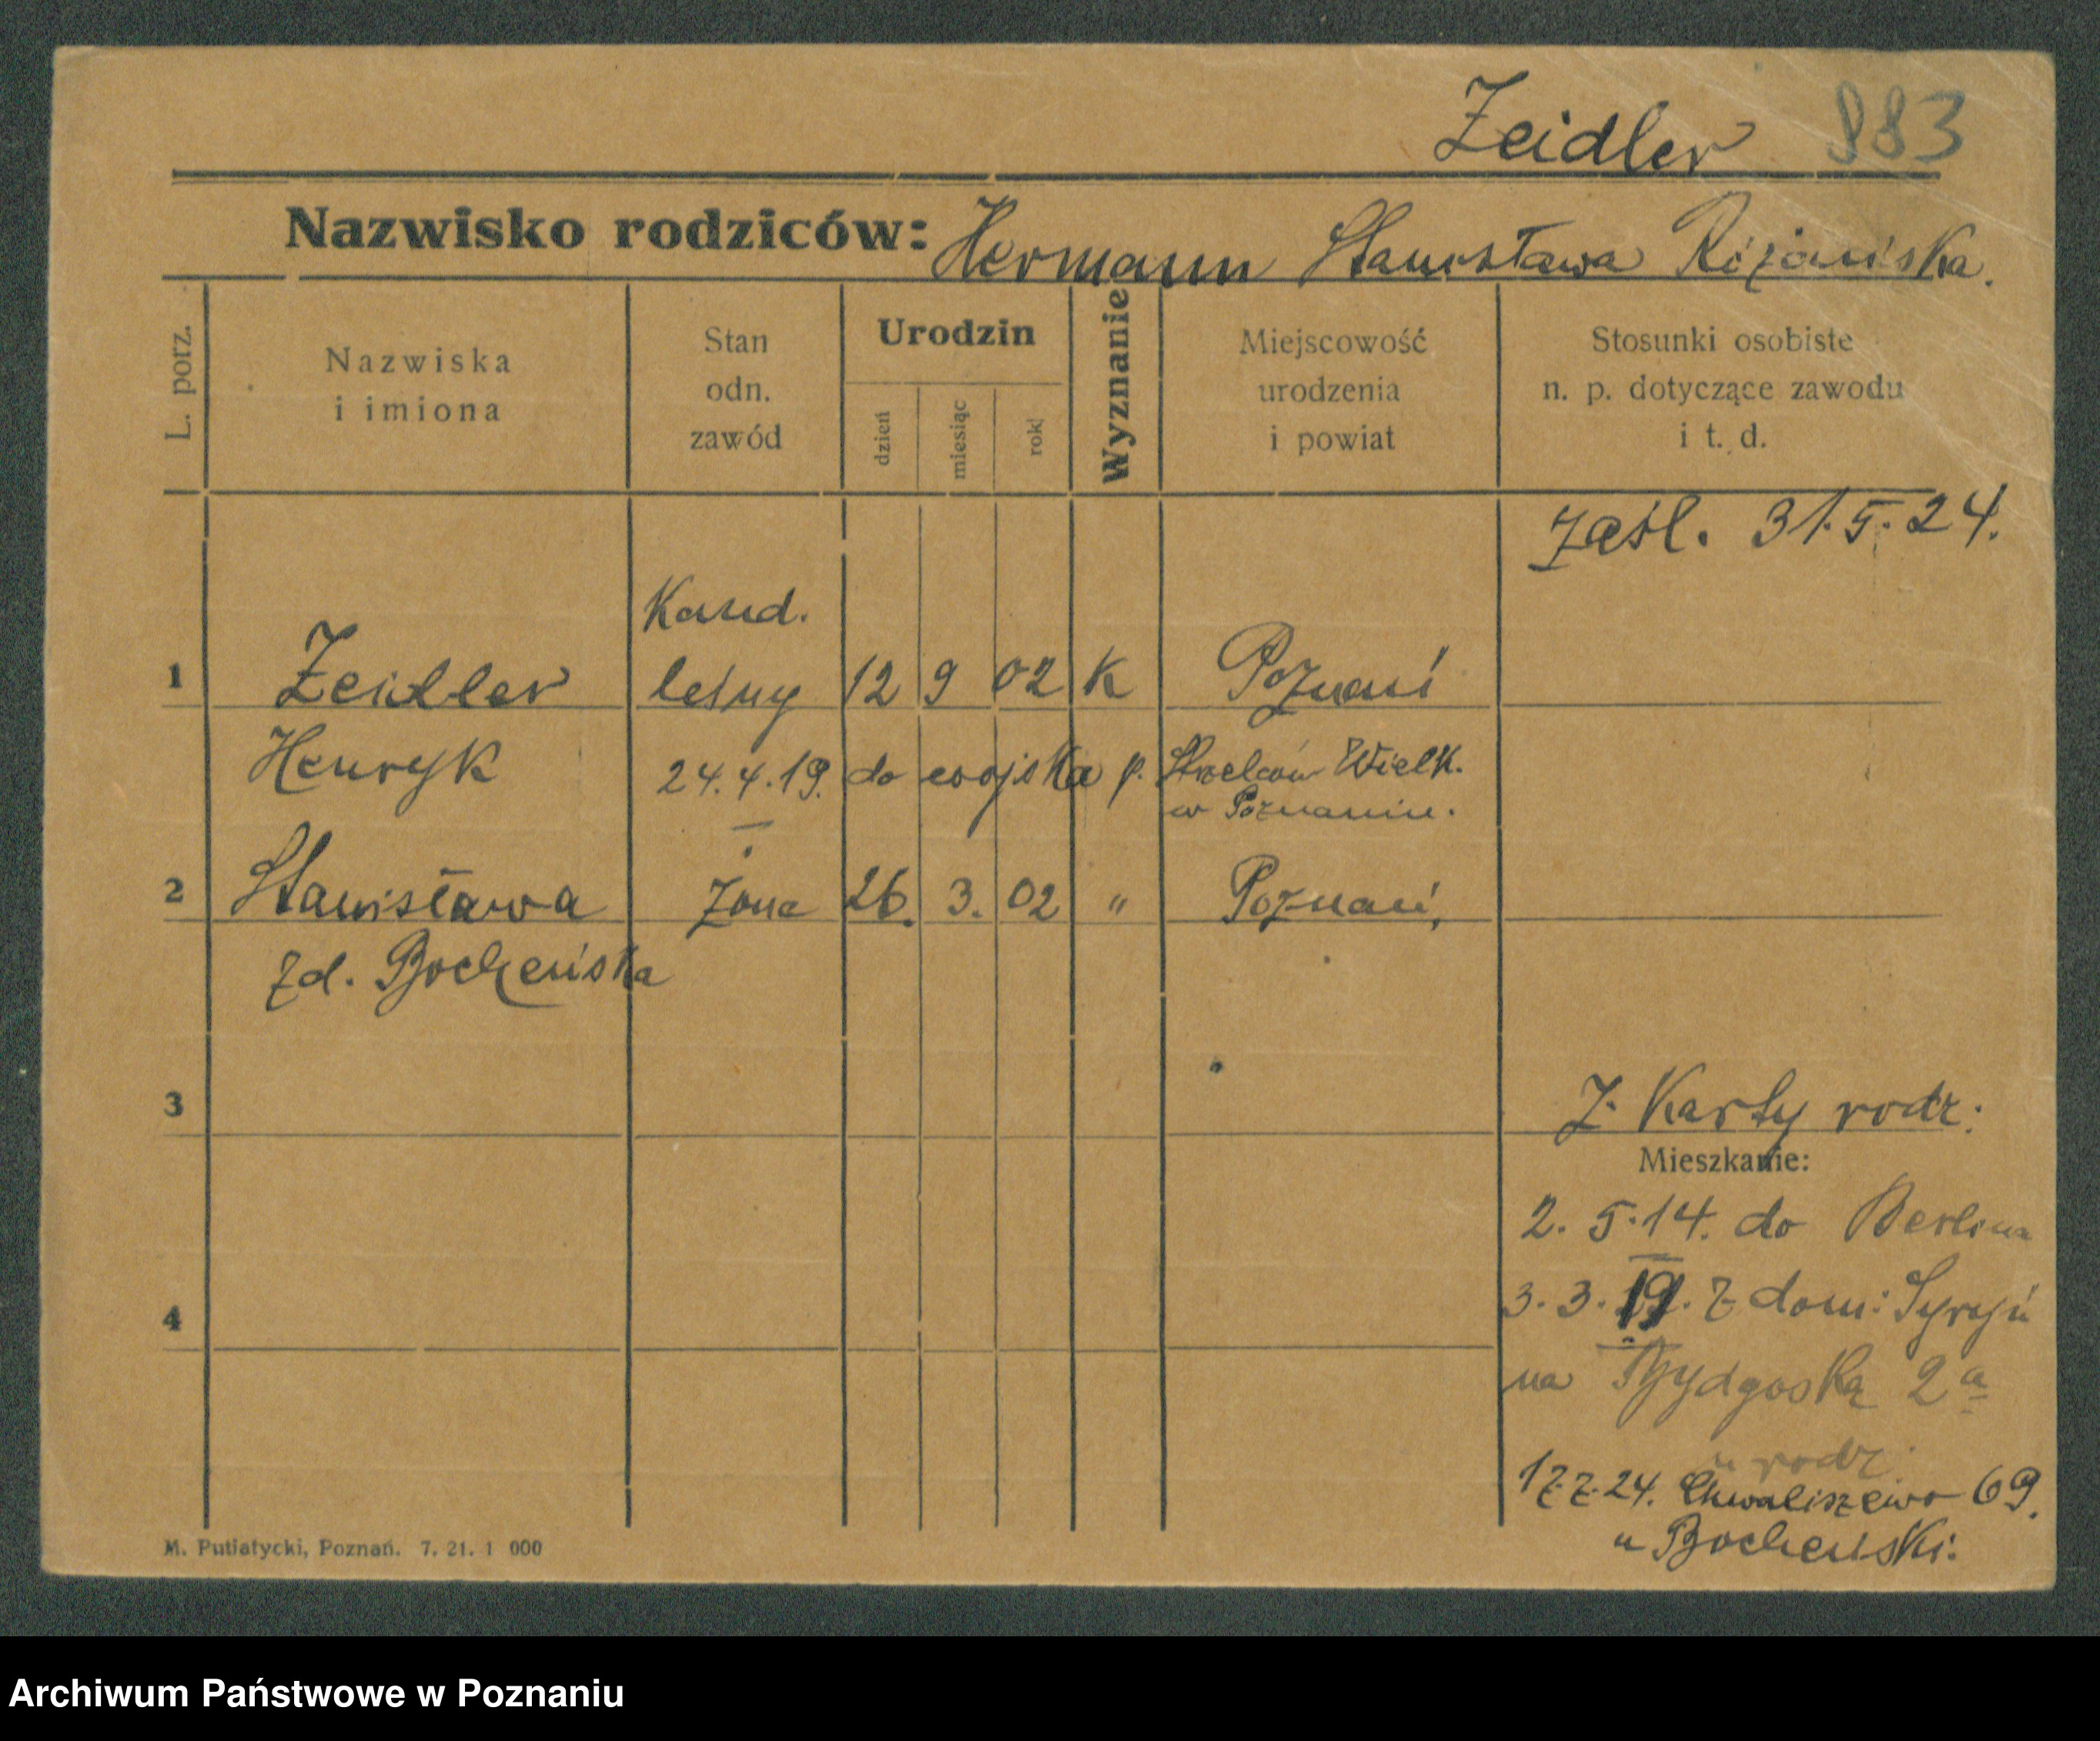 Zeidler 983
Nazwisko rodziców: Hermann Stanisława Różańska.
L. porz.
Nazwiska
i imiona
Stan
odn.
zawód
Urodzin
dzień
miesiąc
rok
Wyznanie
Miejscowość
urodzenia
i powiat
Stosunki osobiste
n. p. dotyczące zawodu
i t. d.
zaśl. 31.5.24.
Kand.
1 Zeidler leśny 12 9 02 K Poznań
Henryk 24.4.19. do wojska p. Strzelców Wielk.
w Poznaniu.
2 Stanisława żona 26. 3. 02 " Poznań,
zd. Bocheńska
3
Z Karty rodz:
Mieszkanie:
2. 5.14. do Berlina
4
3. 3. 19. z dom:
na Bydgoską 2a
u rodz.
17.7.24. Chwaliszewo 69.
u Bocheński.
M. Putiatycki, Poznań. 7. 21. 1 000
Archiwum Państwowe w Poznaniu